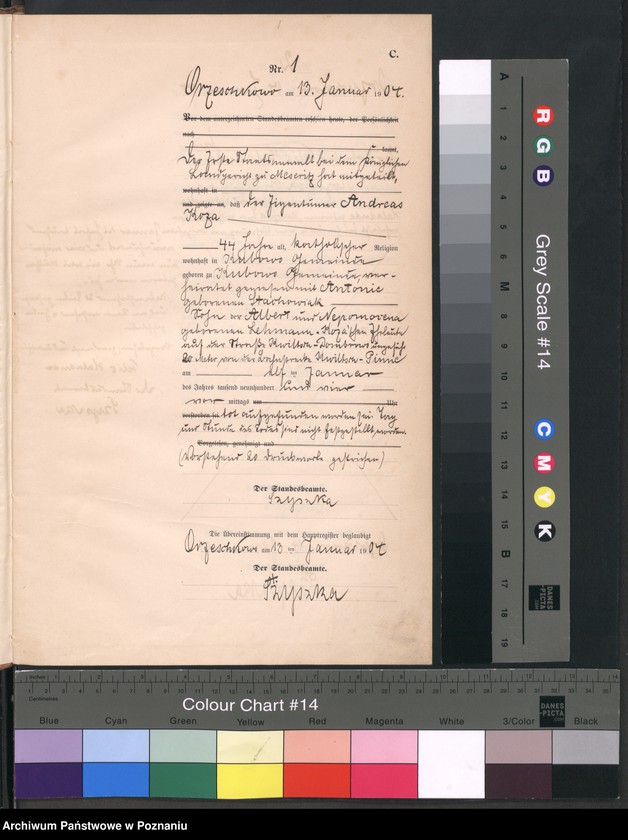 C.
Nr. 1
Orzeschkowo am 13. Januar 1904.
Vor dem unterzeichneten Standesbeamten erschien heute, der Persönlichkeit
nach
kannt,
Der Erste Staatsanwalt bei dem Königlichen
Landgericht zu Meseritz hat mitgeteilt,
wohnhaft in
und zeigte an, daß der Eigentümer Andreas
Koza
44 Jahre alt, katholischer Religion
wohnhaft in Kubowo Gemeinde
geboren zu Kubowo Gemeinde, ver-
heiratet gewesen mit Antonie
geborenen Stachowiak
Sohn der Albert und Nepomocena
geborenen Lehmann-Koza'schen Eheleute
auf der Straße Kwiltsch-Dombrowo ungefähr
20 Meter von der Bahnstrecke Kwiltsch-Pinne
am elf ten Januar
des Jahres tausend neunhundert und vier
vor mittags um Uhr
verstorben sei tot aufgefunden worden sei. Tag
und Stunde des Todes sind nicht festgestellt worden.
Vorgelesen, genehmigt und
(Vorstehend 20 Druckworte gestrichen)
Der Standesbeamte.
Szyszka
Die Übereinstimmung mit dem Hauptregister beglaubigt
Orzeschkowo am 13 ten Januar 1904
Der Standesbeamte.
Szyszka
A
1
2
3
4
5
6
M
8
9
10
11
12
13
14
15
B
17
18
19
R
G
B
Grey Scale #14
C
M
Y
K
DANES-PICTA.COM
Inches
Centimetres
Colour Chart #14
DANES-PICTA.COM
Blue Cyan Green Yellow Red Magenta White 3/Color Black
Archiwum Państwowe w Poznaniu